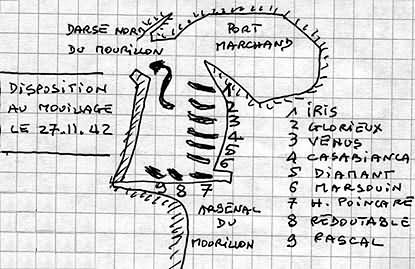 DARSE NORD
DU MOURILLON
PORT
MARCHAND
DISPOSITION
AU MOUILLAGE
LE 27.11.42
1
2
3
4
5
6
9 8 7
ARSENAL
DU
MOURILLON
1 IRIS
2 GLORIEUX
3 VENUS
4 CASABIANCA
5 DIAMANT
6 MARSOUIN
7 H. POINCARE
8 REDOUTABLE
9 PASCAL